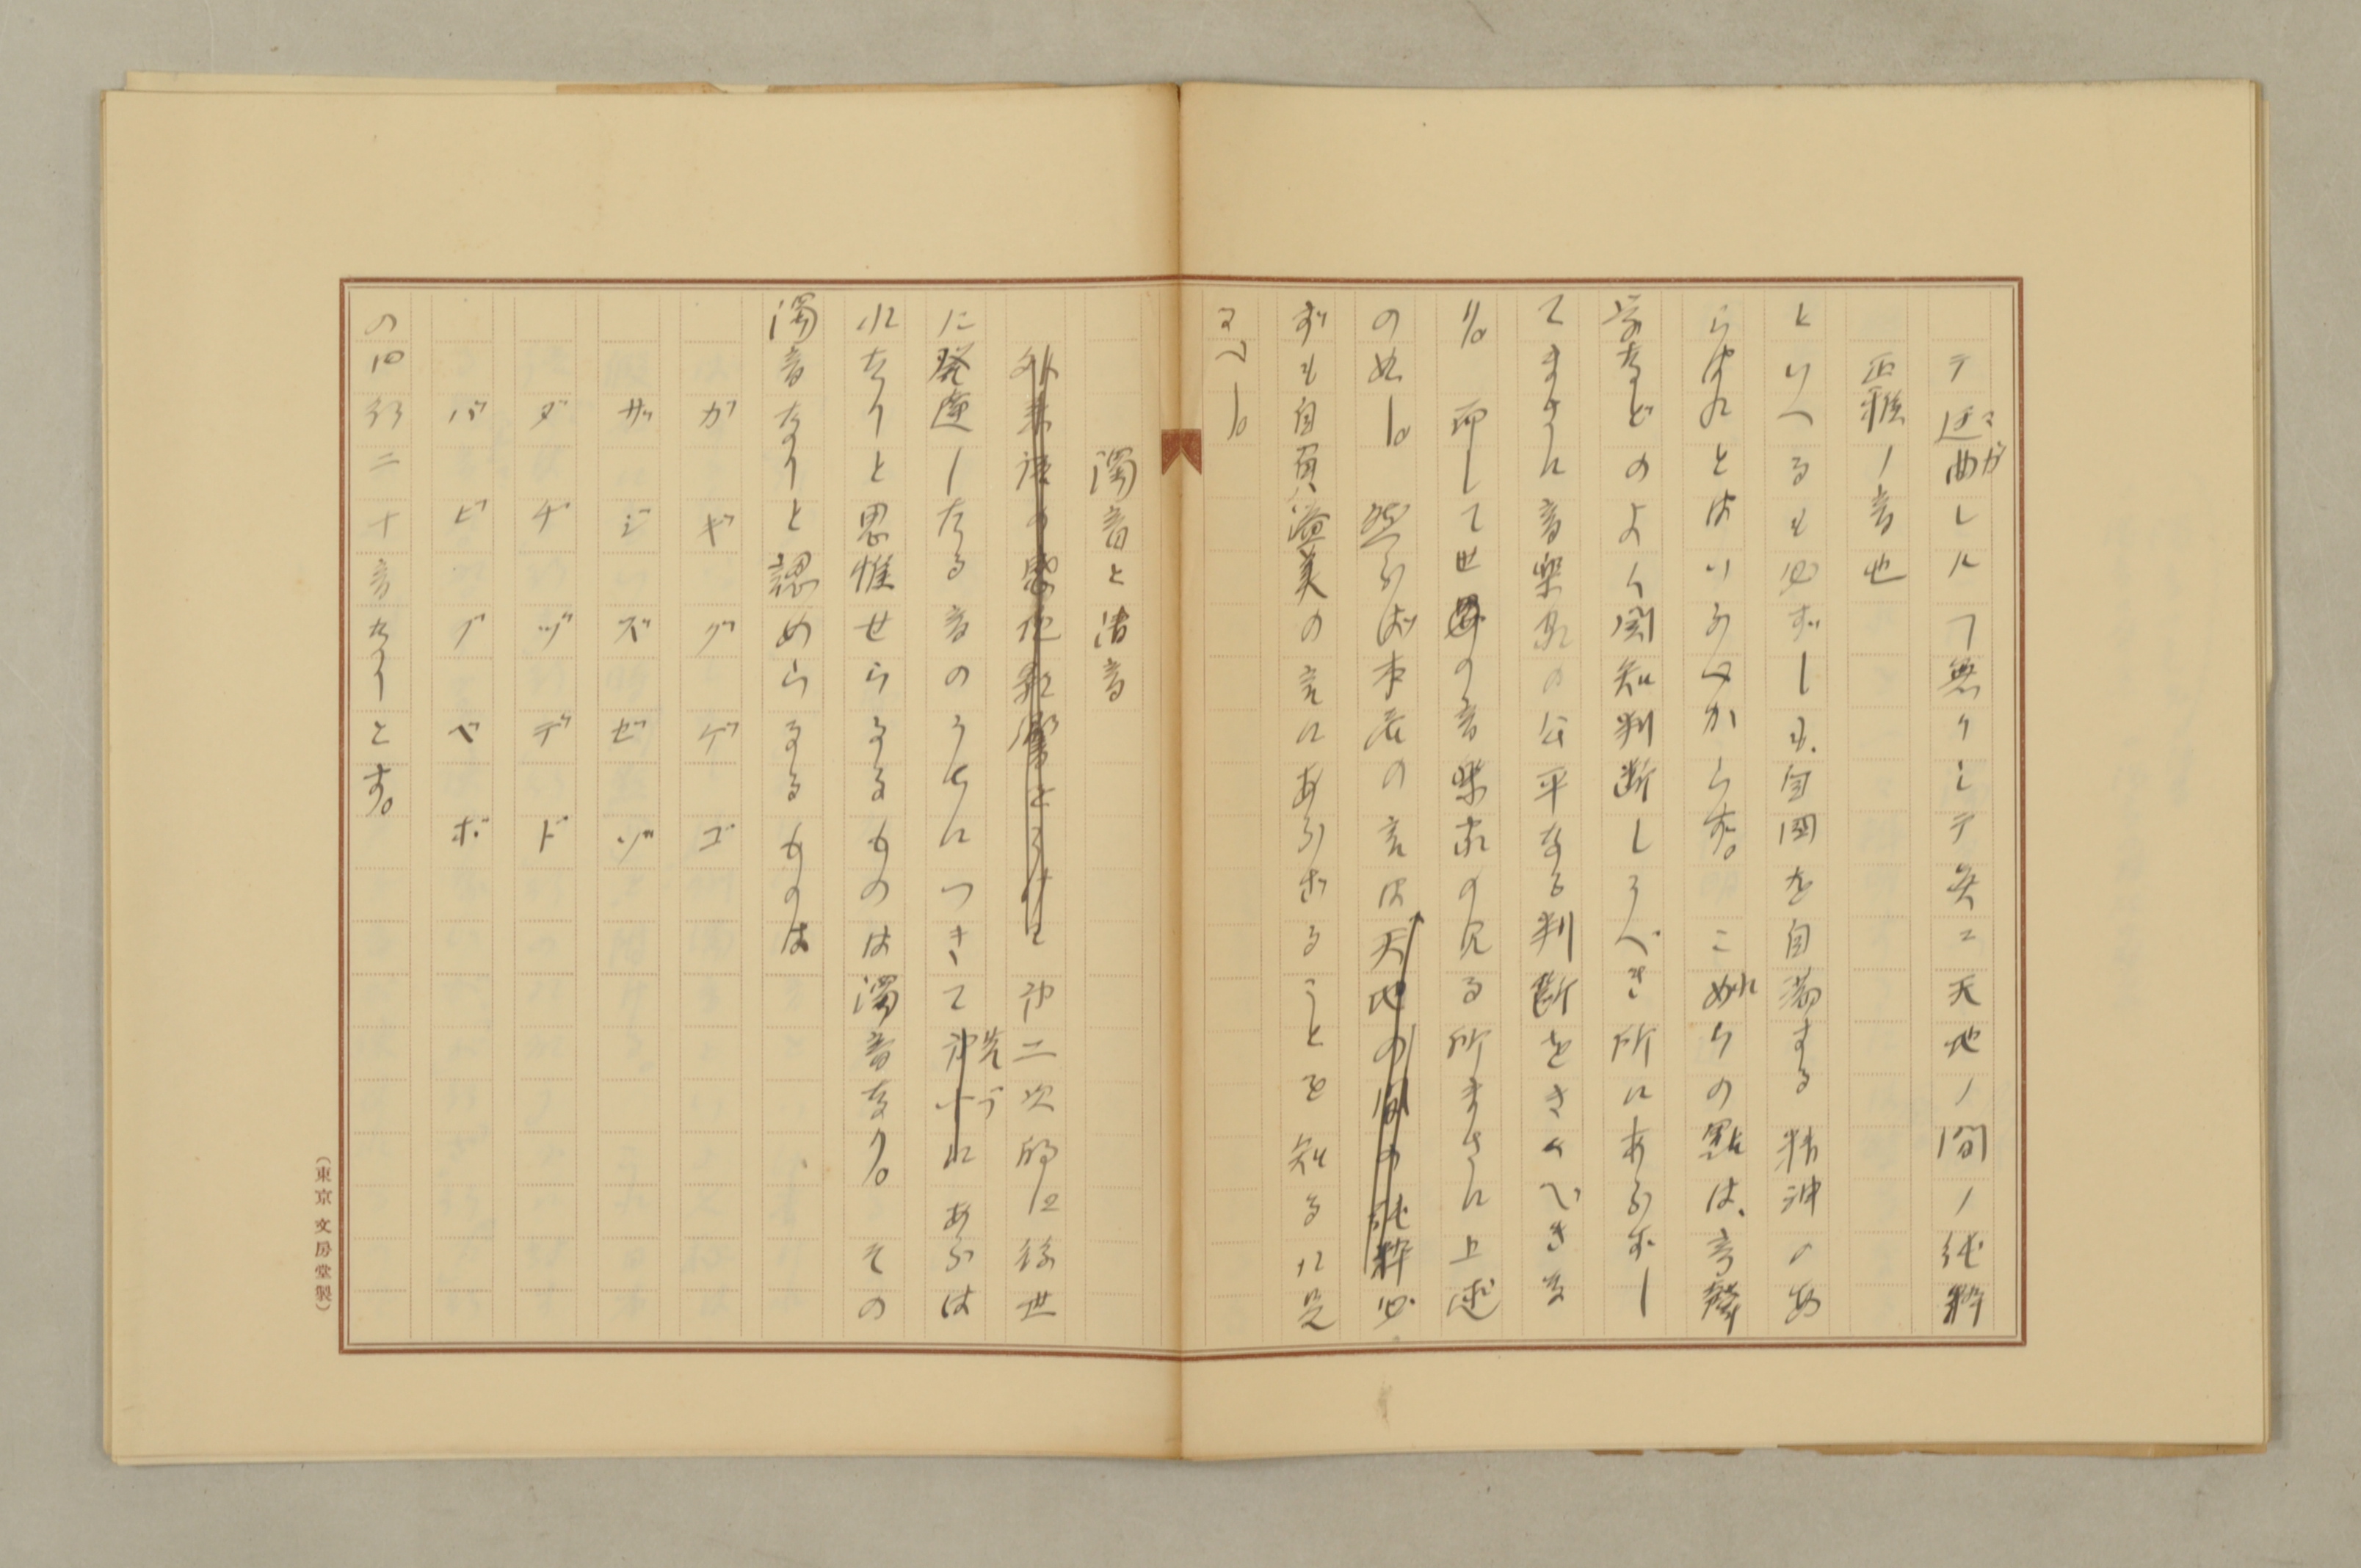 テ迂曲レルヿ無クシテ実ニ天地ノ間ノ純粋
マガ
正雅ノ音也
といへるも必ずしも、自国を自尊する精神のあ
らはれとはいふべからず。これらの點は、音聲
学などのよく関知判断しうべき所にあらずし
てまさに音楽家の公平なる判断をきくべきな
り。而して世界の音楽家の見る所まさに上述
の如し。然らば本居の言は天地の間の純粋必
ずも自負溢美の言にあらざることを知るに足
るべし。
濁音と清音
外来語の感化影響をうけて第二次的に後世
に発達したる音のうちにつきて第十にあるは
先づ
れたりと思惟せらるるものは濁音なり。その
濁音なりと認めらるるものは
ガ ギ グ ゲ ゴ
ザ ジ ズ ゼ ゾ
ダ ヂ ヅ デ ド
バ ビ ブ ベ ボ
の四行二十音なりとす。
(東京 文房堂製)